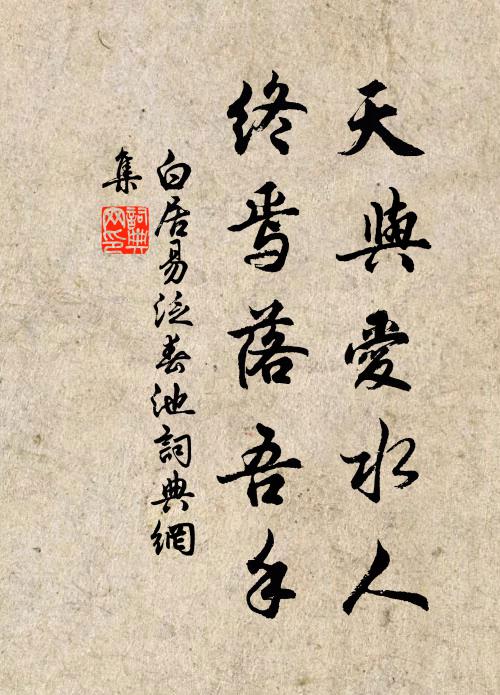 天與愛水人
終焉落吾手
白居易泛春池詞典網
集
詞典
网印